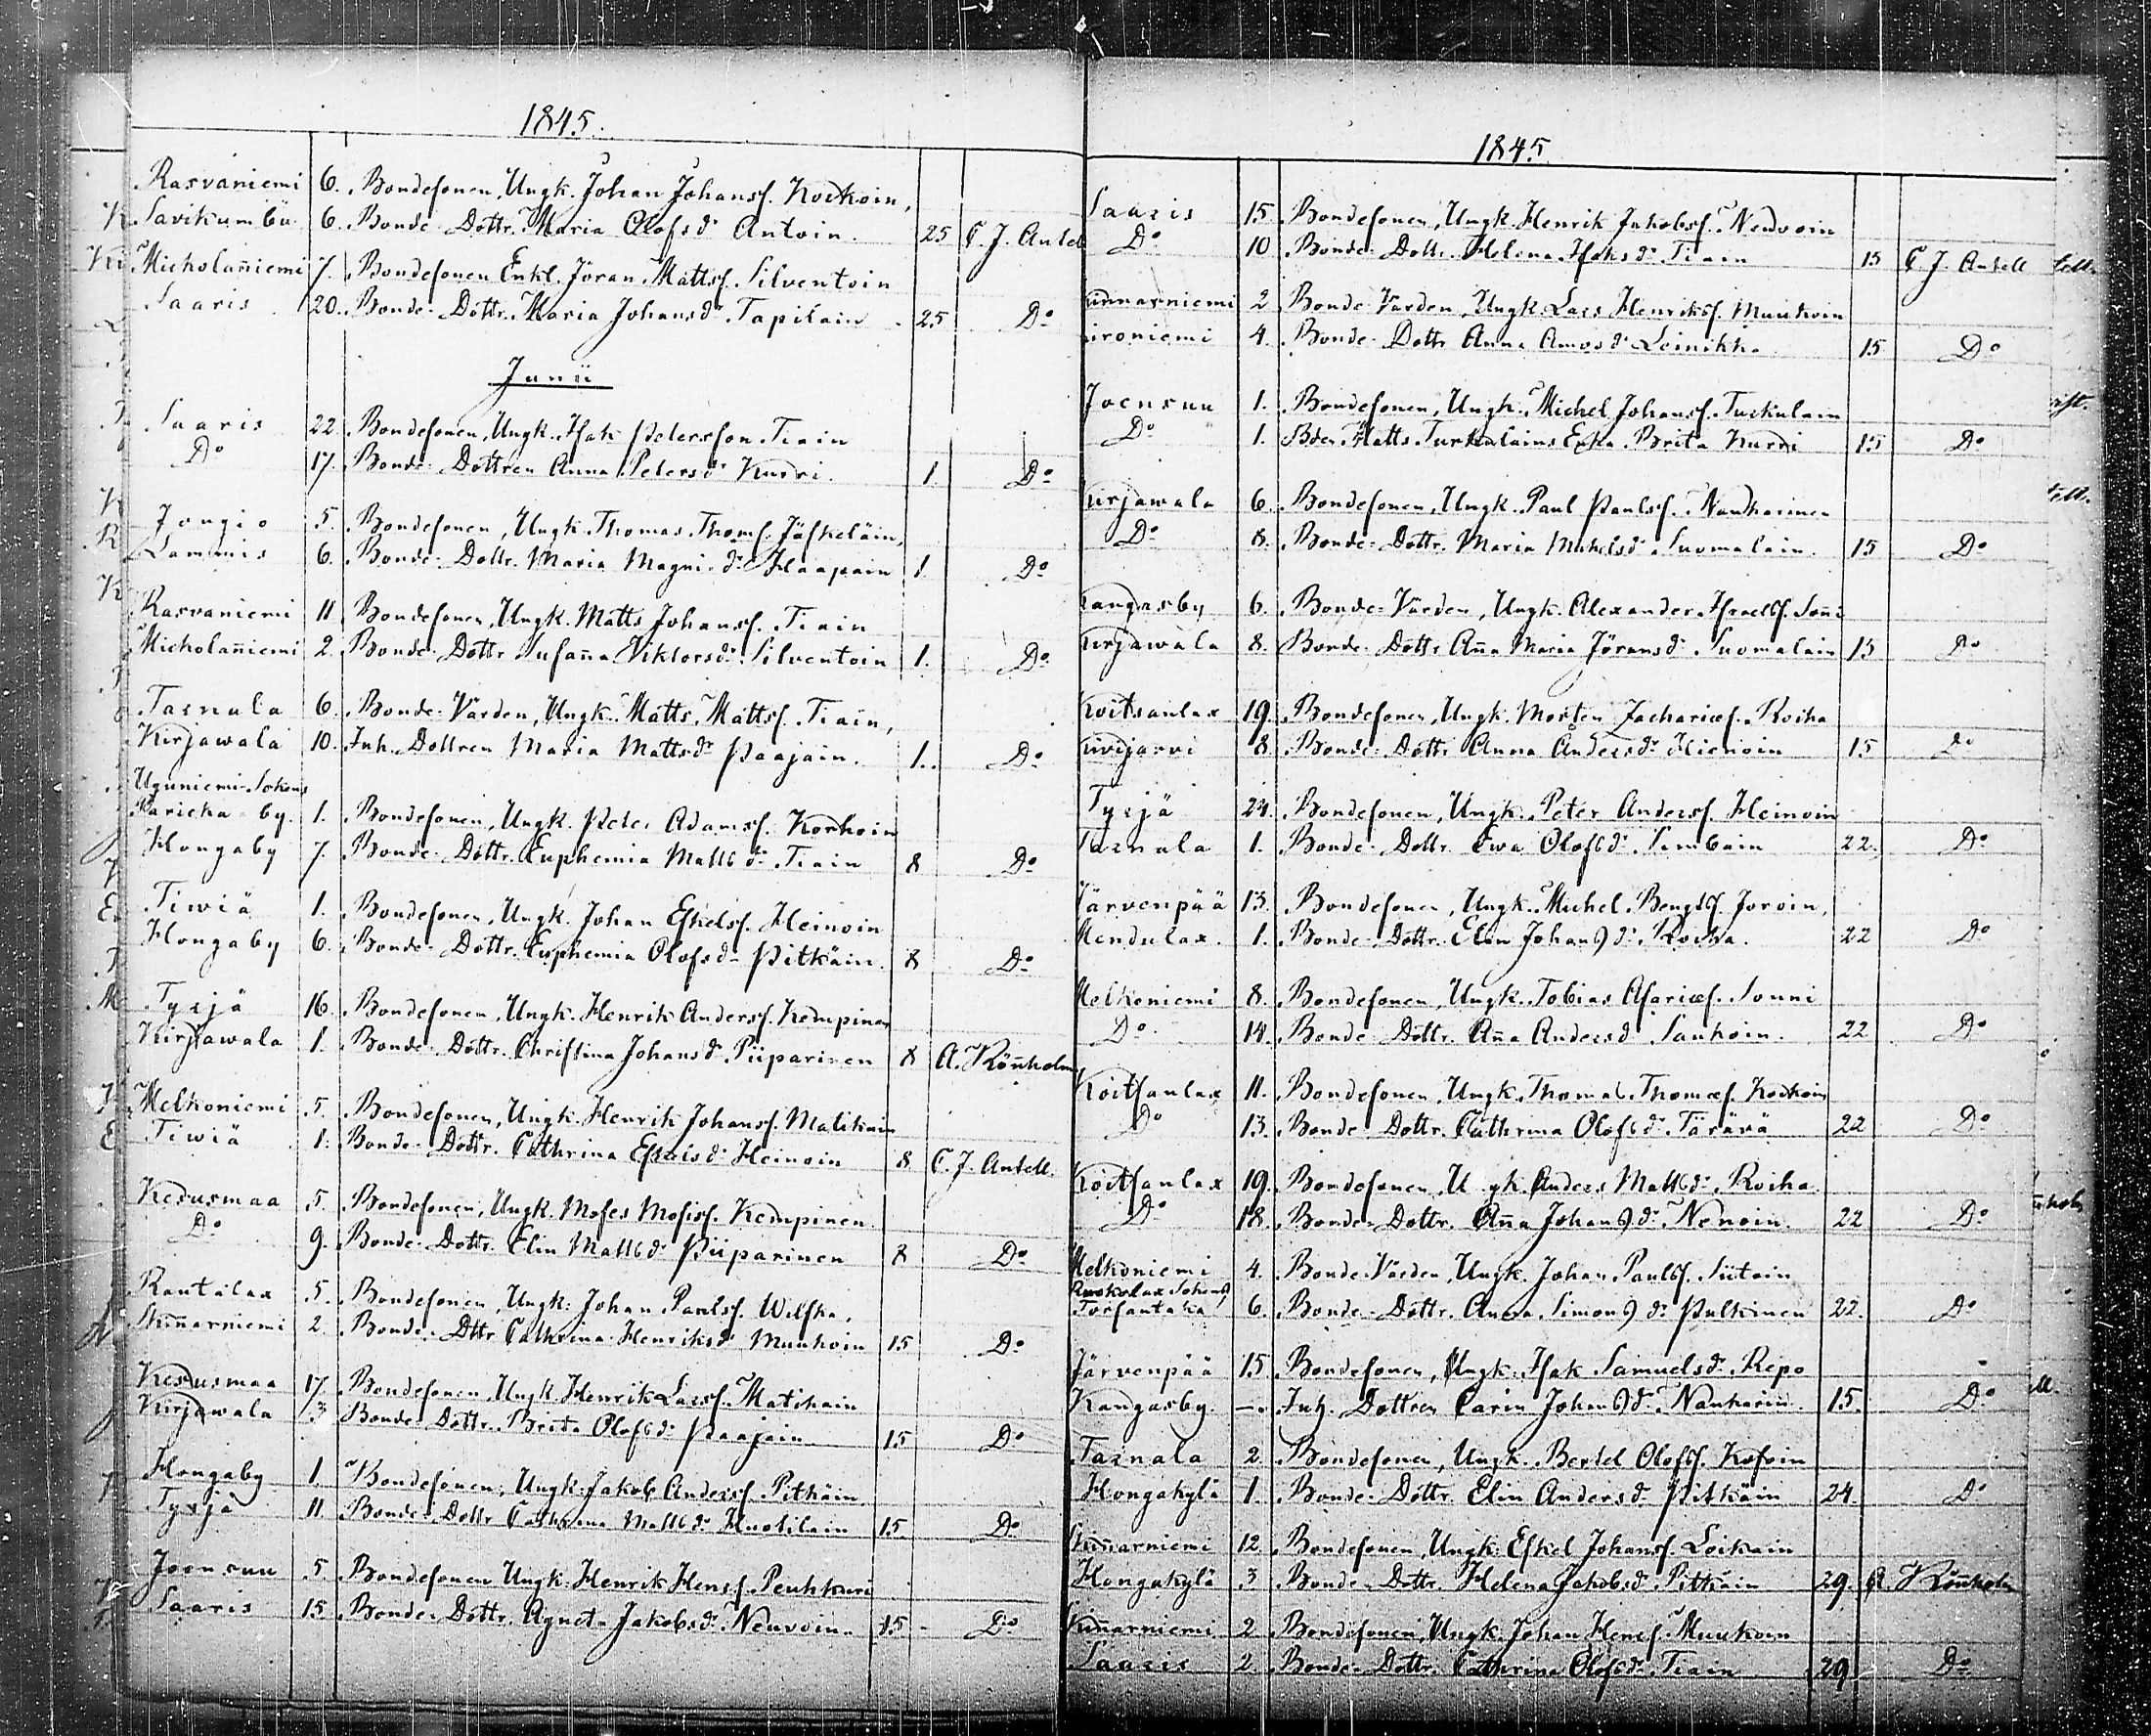 1845.
Rasvaniemi 6. Bondesonen, Ungk. Johan Johansf. Korkoin,
Savikumbu 6. Bonde-Dottr. Maria Olofsdr Antoin. 25 C. J. Antell
Micholañiemi 7. Bondesonen Enkl. Jöran Mattsf. Silventoin
Saaris 20. Bonde-Dottr. Maria Johansdr Tapilain 25 Do
Junii
Saaris 22. Bondesonen, Ungk. Isak Petersson Tiain
Do 17. Bonde-Dottren Anna Petersdr Kurri. 1. Do
Jougio 5. Bondesonen, Ungk. Thomas Thomsf. Jäskeläin,
Lammis 6. Bonde-Dottr. Maria Magni-dr Haapain 1. Do
Rasvaniemi 11 Bondesonen, Ungk. Matts Johansf. Tiain
Micholañiemi 2. Bonde-Dottr Susaña Viktorsdr Silventoin 1. Do
Tarnala 6. Bonde-Vården, Ungk. Matts Mattsf. Tiain,
Kirjawala 10. Inh. Dottren Maria Mattsdr Paajain. 1. Do
Uguniemi Sokens
Karicka-by. 1. Bondesonen, Ungk. Peter Adamsf. Korhoin
Hongaby 7. Bonde-Dottr. Euphemia Mattsdr Tiain 8 Do
Tiwiä 1. Bondesonen, Ungk. Johan Eskelsf. Heinoin
Hongaby 6. Bonde-Dottr. Euphemia Olofsdr Pitkäin. 8 Do
Tyrjä 16. Bondesonen, Ungk. Henrik Andersf. Kempinen
Kirjawala 1. Bonde-Dottr. Christina Johansdr Piiparinen 8 A. Röñholm
Melkoniemi 5. Bondesonen, Ungk. Henrik Johansf. Matikain
Tiwiä 1. Bonde-Dottr. Cathrina Eskelsdr Heinoin 8 C. J. Antell.
Kesusmaa 5. Bondesonen, Ungk. Moses Mosisf. Kempinen
Do 9. Bonde-Dottr. Elin Mattsdr Piiparinen 8 Do
Rautalax 5. Bondesonen, Ungk. Johan Paulsf. Wilska,
Kiñarniemi 2. Bonde-Dttr Cathrina Henriksdr Muukoin 15 Do
Kesusmaa 17. Bondesonen, Ungk. Henrik Larsf. Matikain
Kirjawala 3 Bonde-Dottr. Brita Olofsdr Paajain 15 Do
Hongaby 1. Bondesonen, Ungk. Jakob Andersf. Pitkäin
Tyrjä 11. Bonde-Dottr Cathrina Mattsdr Huotilain 15 Do
Joensuu 5. Bondesonen Ungk. Henrik Hensf. Peuhkuri
Saaris 15. Bonde-Dottr. Agneta Jakobsdr Neuvoin. 15 Do
1845.
Saaris 15. Bondesonen, Ungk. Henrik Jakobsf. Neuvoin
Do 10 Bonde-Dottr. Helena Isaksdr Tiain 15 C. J. Antell
Kinnarniemi 2 Bonde Vården, Ungk. Lars Henriksf. Muukoin
4. Bonde-Dottr Anna Amosdr Leinikka 15 Do
Joensuu 1. Bondesonen, Ungk. Michel Johansf. Turkulain
Do 1. Bden Matts Turkulains Enka Brita Kurri 15 Do
Kirjawala 6. Bondesonen, Ungk. Paul Paulsf. Naukarinen
Do 8. Bonde-Dottr. Maria Michelsdr Suomalain. 15 Do
Kangasby 6. Bonde-Vården, Ungk. Alexander Israelsf. Soñi
Kirjawala 8. Bonde-Dottr Aña Maria Jöransdr Suomalain 15 Do
Koitsanlax 19. Bondesonen, Ungk. Morten Zachariæf. Roiha
Kivijärvi 8. Bonde-Dottr Anna Andersdr Hienoin 15 Do
Tyrjä 24. Bondesonen, Ungk. Peter Andersf. Heinoin
Tarnala 1. Bonde-Dottr. Ewa Olofsdr Simbain 22. Do
Järvenpää 13. Bondesonen, Ungk. Michel Bengtsf. Joroin,
Mendulax. 1. Bonde-Dottr. Elin Johansdr Roiha. 22 Do
Melkoniemi 8. Bondesonen, Ungk. Tobias Asariæf. Sonni
Do 14. Bonde-Dottr. Aña Andersdr Saukoin. 22 Do
Koitsanlax 11. Bondesonen, Ungk. Thomas Thomæf. Korkoin
Do 13. Bonde-Dottr. Cathrina Olofsdr Tärävä 22 Do
Koitsanlax 19. Bondesonen, Ungk. Anders Mattsdr Roiha
Do 18. Bonde-Dottr. Aña Johansdr Nenoin. 22 Do
Melkoniemi 4. Bonde-Vården, Ungk. Johan Paulsf. Siitoin
Ruokolax Sokens
Torsantaka 6. Bonde-Dottr. Anna Simonsdr Pulkinen 22. Do
Järvenpää 15 Bondesonen, Ungk. Isak Samuelsdr Repo
Kangasby. —. Inh. Dottren Carin Johansdr Naukarin. 15. Do
Tarnala 2. Bondesonen, Ungk. Bertel Olofsf. Kosoin
Hongakylä 1. Bonde-Dottr. Elin Andersdr Pitkäin 24. Do
Kiñarniemi 12. Bondesonen, Ungk. Eskel Johansf. Loikain
Hongakylä 3 Bonde-Dottr. Helena Jakobsdr Pitkäin 29. A. Röñholm
Kiñarniemi 2 Bondesonen, Ungk. Johan Hensf. Muukoin
Saaris 2. Bonde-Dottr. Cathrina Olofsdr Tiain 29. Do